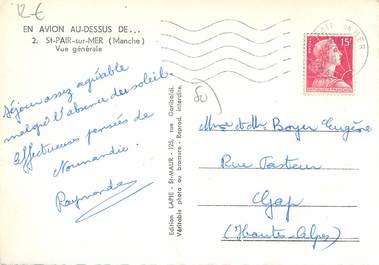 12€
EN AVION AU-DESSUS DE...
2. St-PAIR-sur-MER (Manche)
Vue générale
15F
50
Séjour assez agréable
malgré l'absence du soleil.
Affectueuses pensées de
Normandie.
Raymonde
Edition LAPIE - St-MAUR - 125, rue Garibaldi.
Véritable photo au bromure - Reprod. interdite.
Mme et Mr Boyer Eugène
Rue Pasteur
Gap
(Hautes-Alpes)